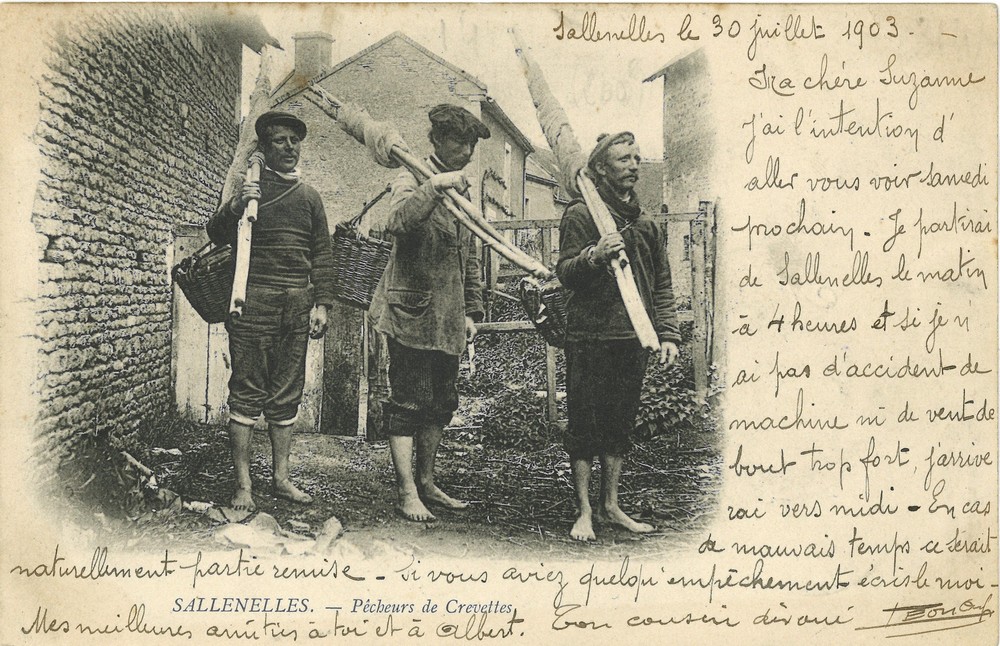 Sallenelles le 30 juillet 1903. -
Ma chére Suzanne
j'ai l'intention d'
aller vous voir samedi
prochain. Je partirai
de Sallenelles le matin
à 4 heures et si je n'
ai pas d'accident de
machine ni de vent de
bout trop fort, j'arrive
rai vers midi - En cas
de mauvais temps ce serait
naturellement partie remise - Si vous aviez quelqu'empêchement écris le moi -
SALLENELLES. — Pêcheurs de Crevettes
Mes meilleures amitiés à toi et à Albert. Ton cousin dévoué